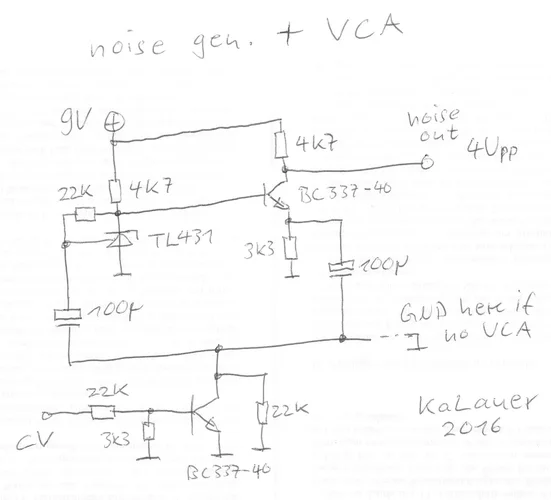 noise gen. + VCA
9V
noise
out
4Vpp
4K7
22K
4K7
BC337-40
TL431
3K3
100µ
100µ
GND here if
no VCA
22K
22K
3K3
CV
BC337-40
KaLauer
2016